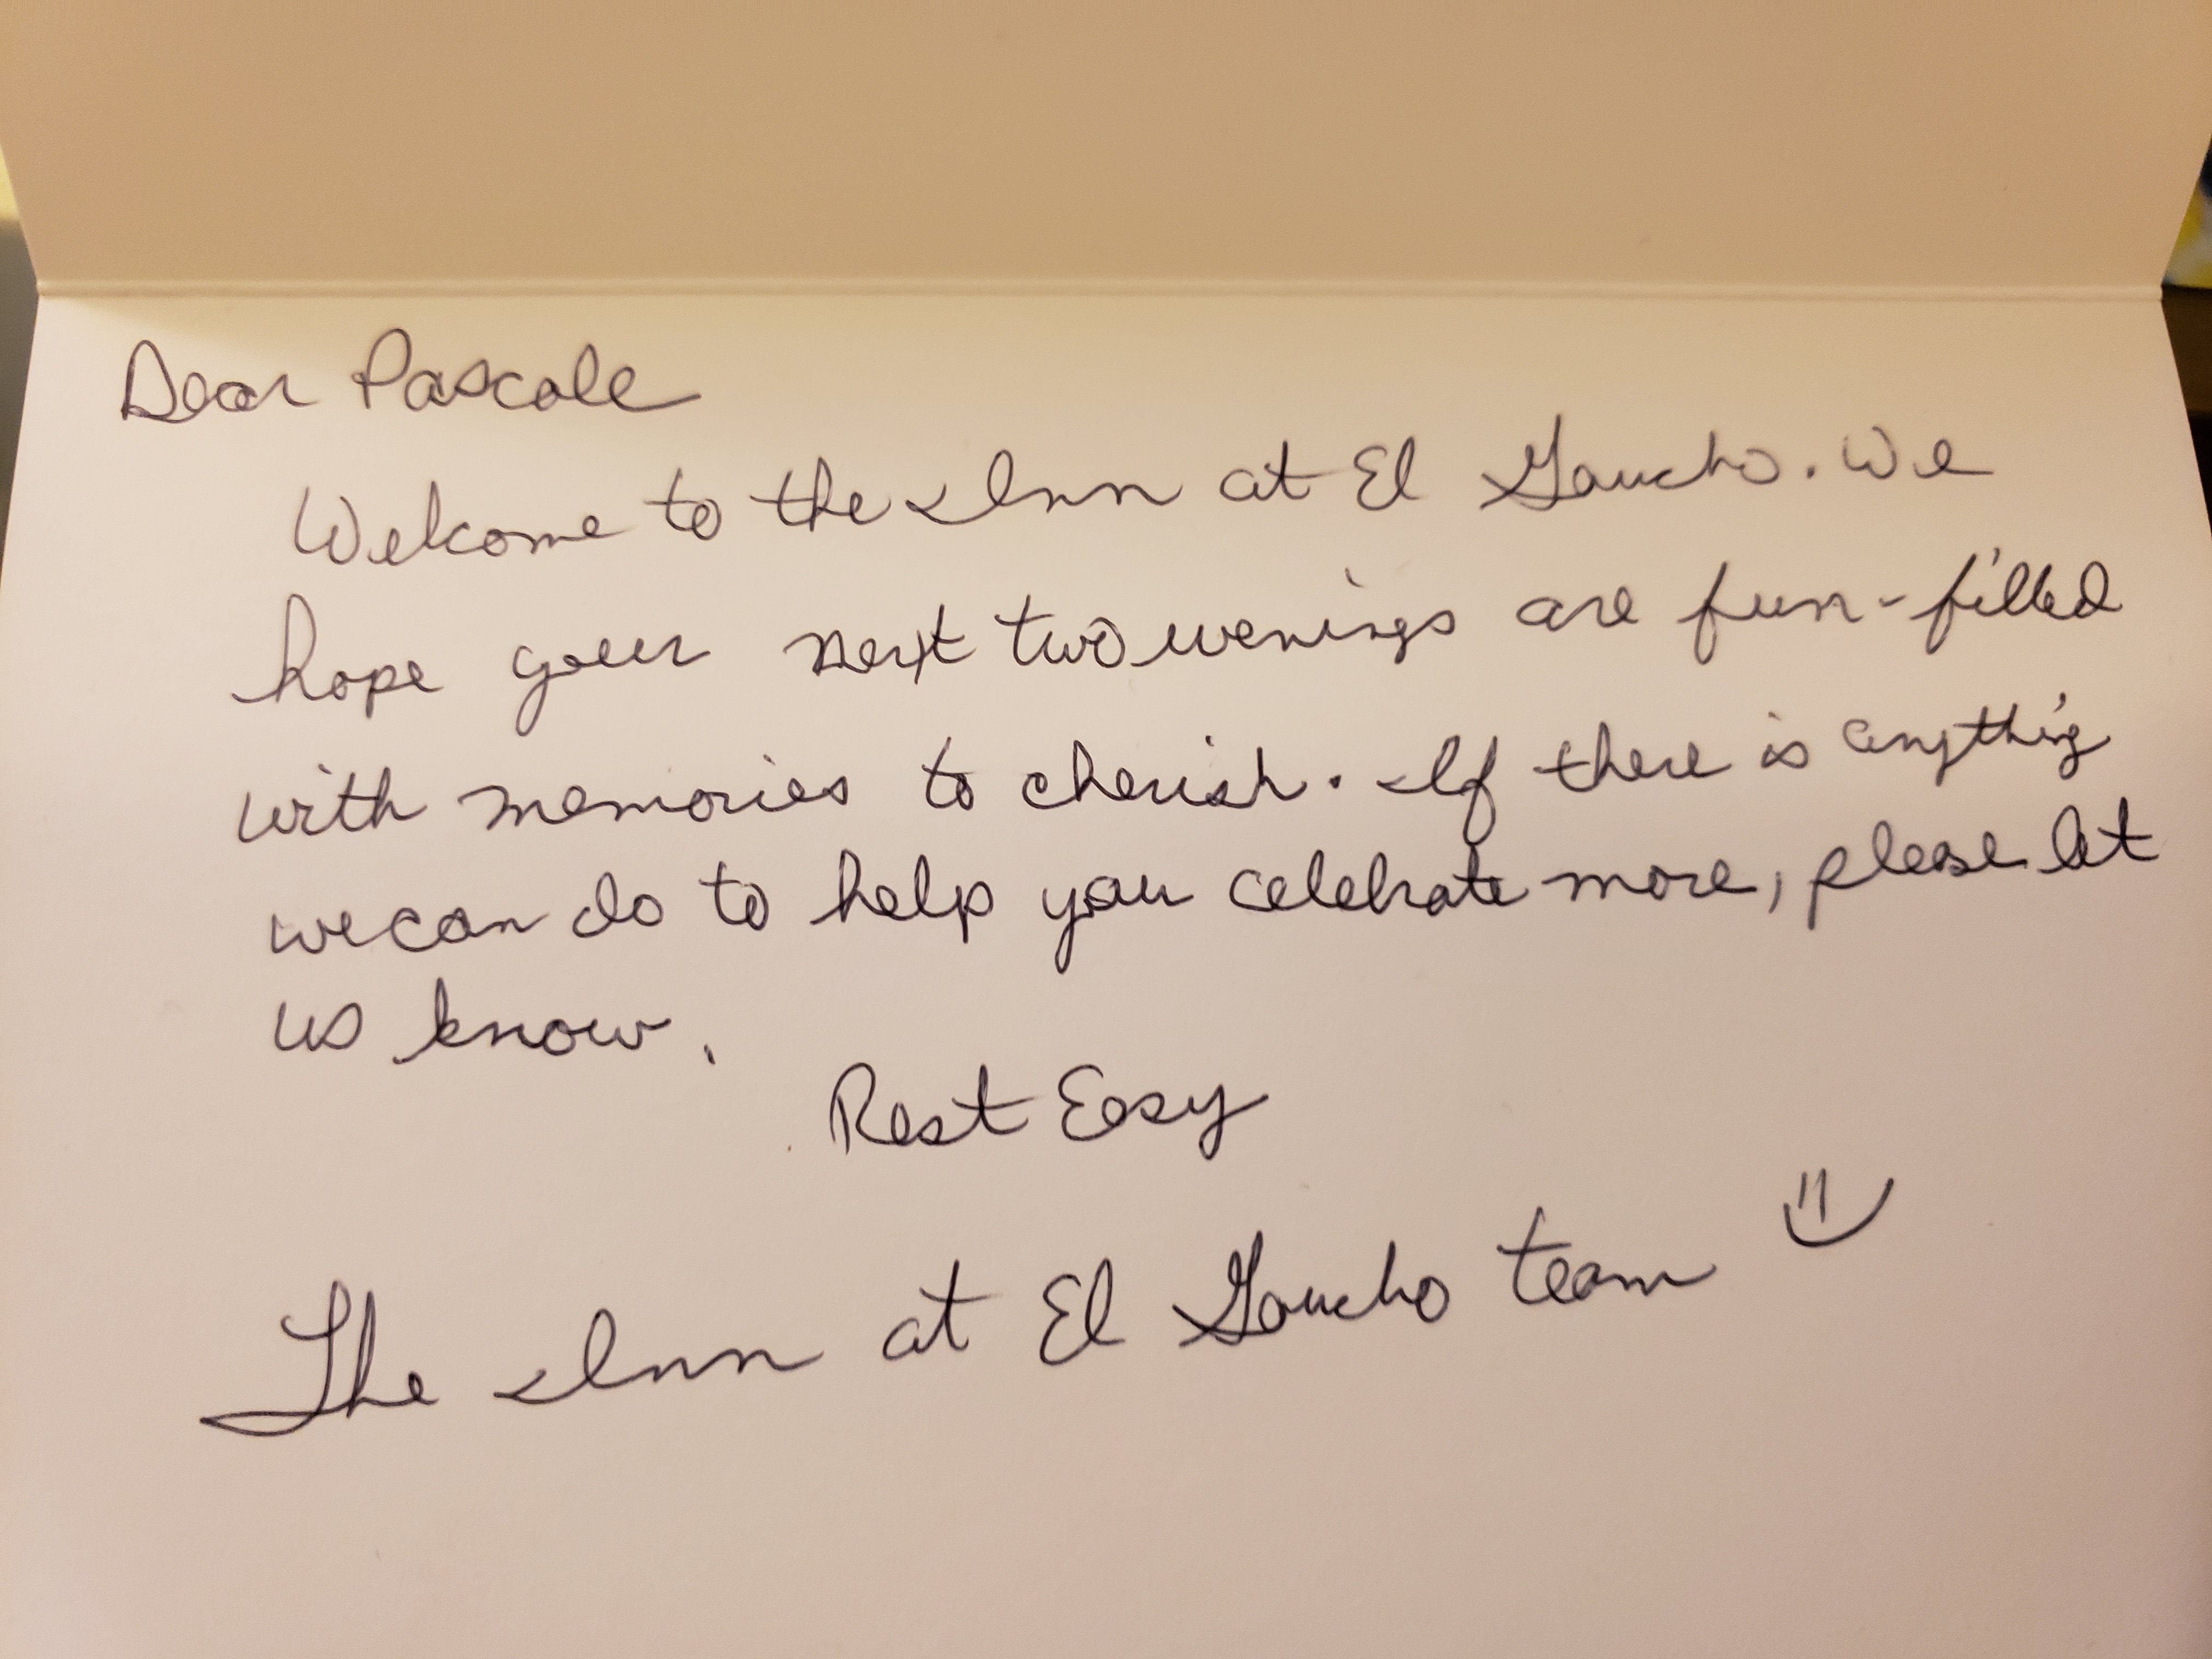 Dear Pascale
Welcome to the Inn at El Gaucho. We
hope your next two evenings are fun-filled
with memories to cherish. If there is anything
we can do to help you celebrate more, please let
us know.
Rest Easy
The Inn at El Gaucho team =)